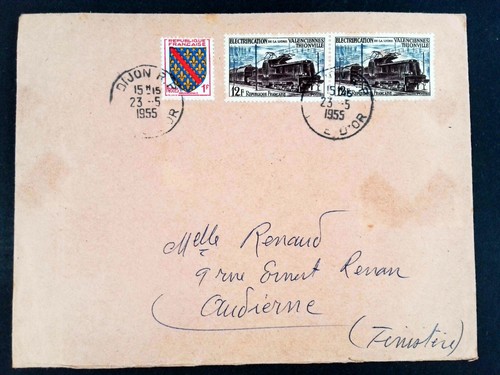 REPUBLIQUE
FRANÇAISE
1F
ELECTRIFICATION DE LA LIGNE VALENCIENNES THIONVILLE
12F REPUBLIQUE FRANÇAISE
ELECTRIFICATION DE LA LIGNE VALENCIENNES THIONVILLE
12F REPUBLIQUE FRANÇAISE
DIJON
15H15
23 -5
1955
OR
15H15
23 -5
1955
D'OR
Melle Renaud
9 rue Ernest Renan
Audierne
(Finistère)